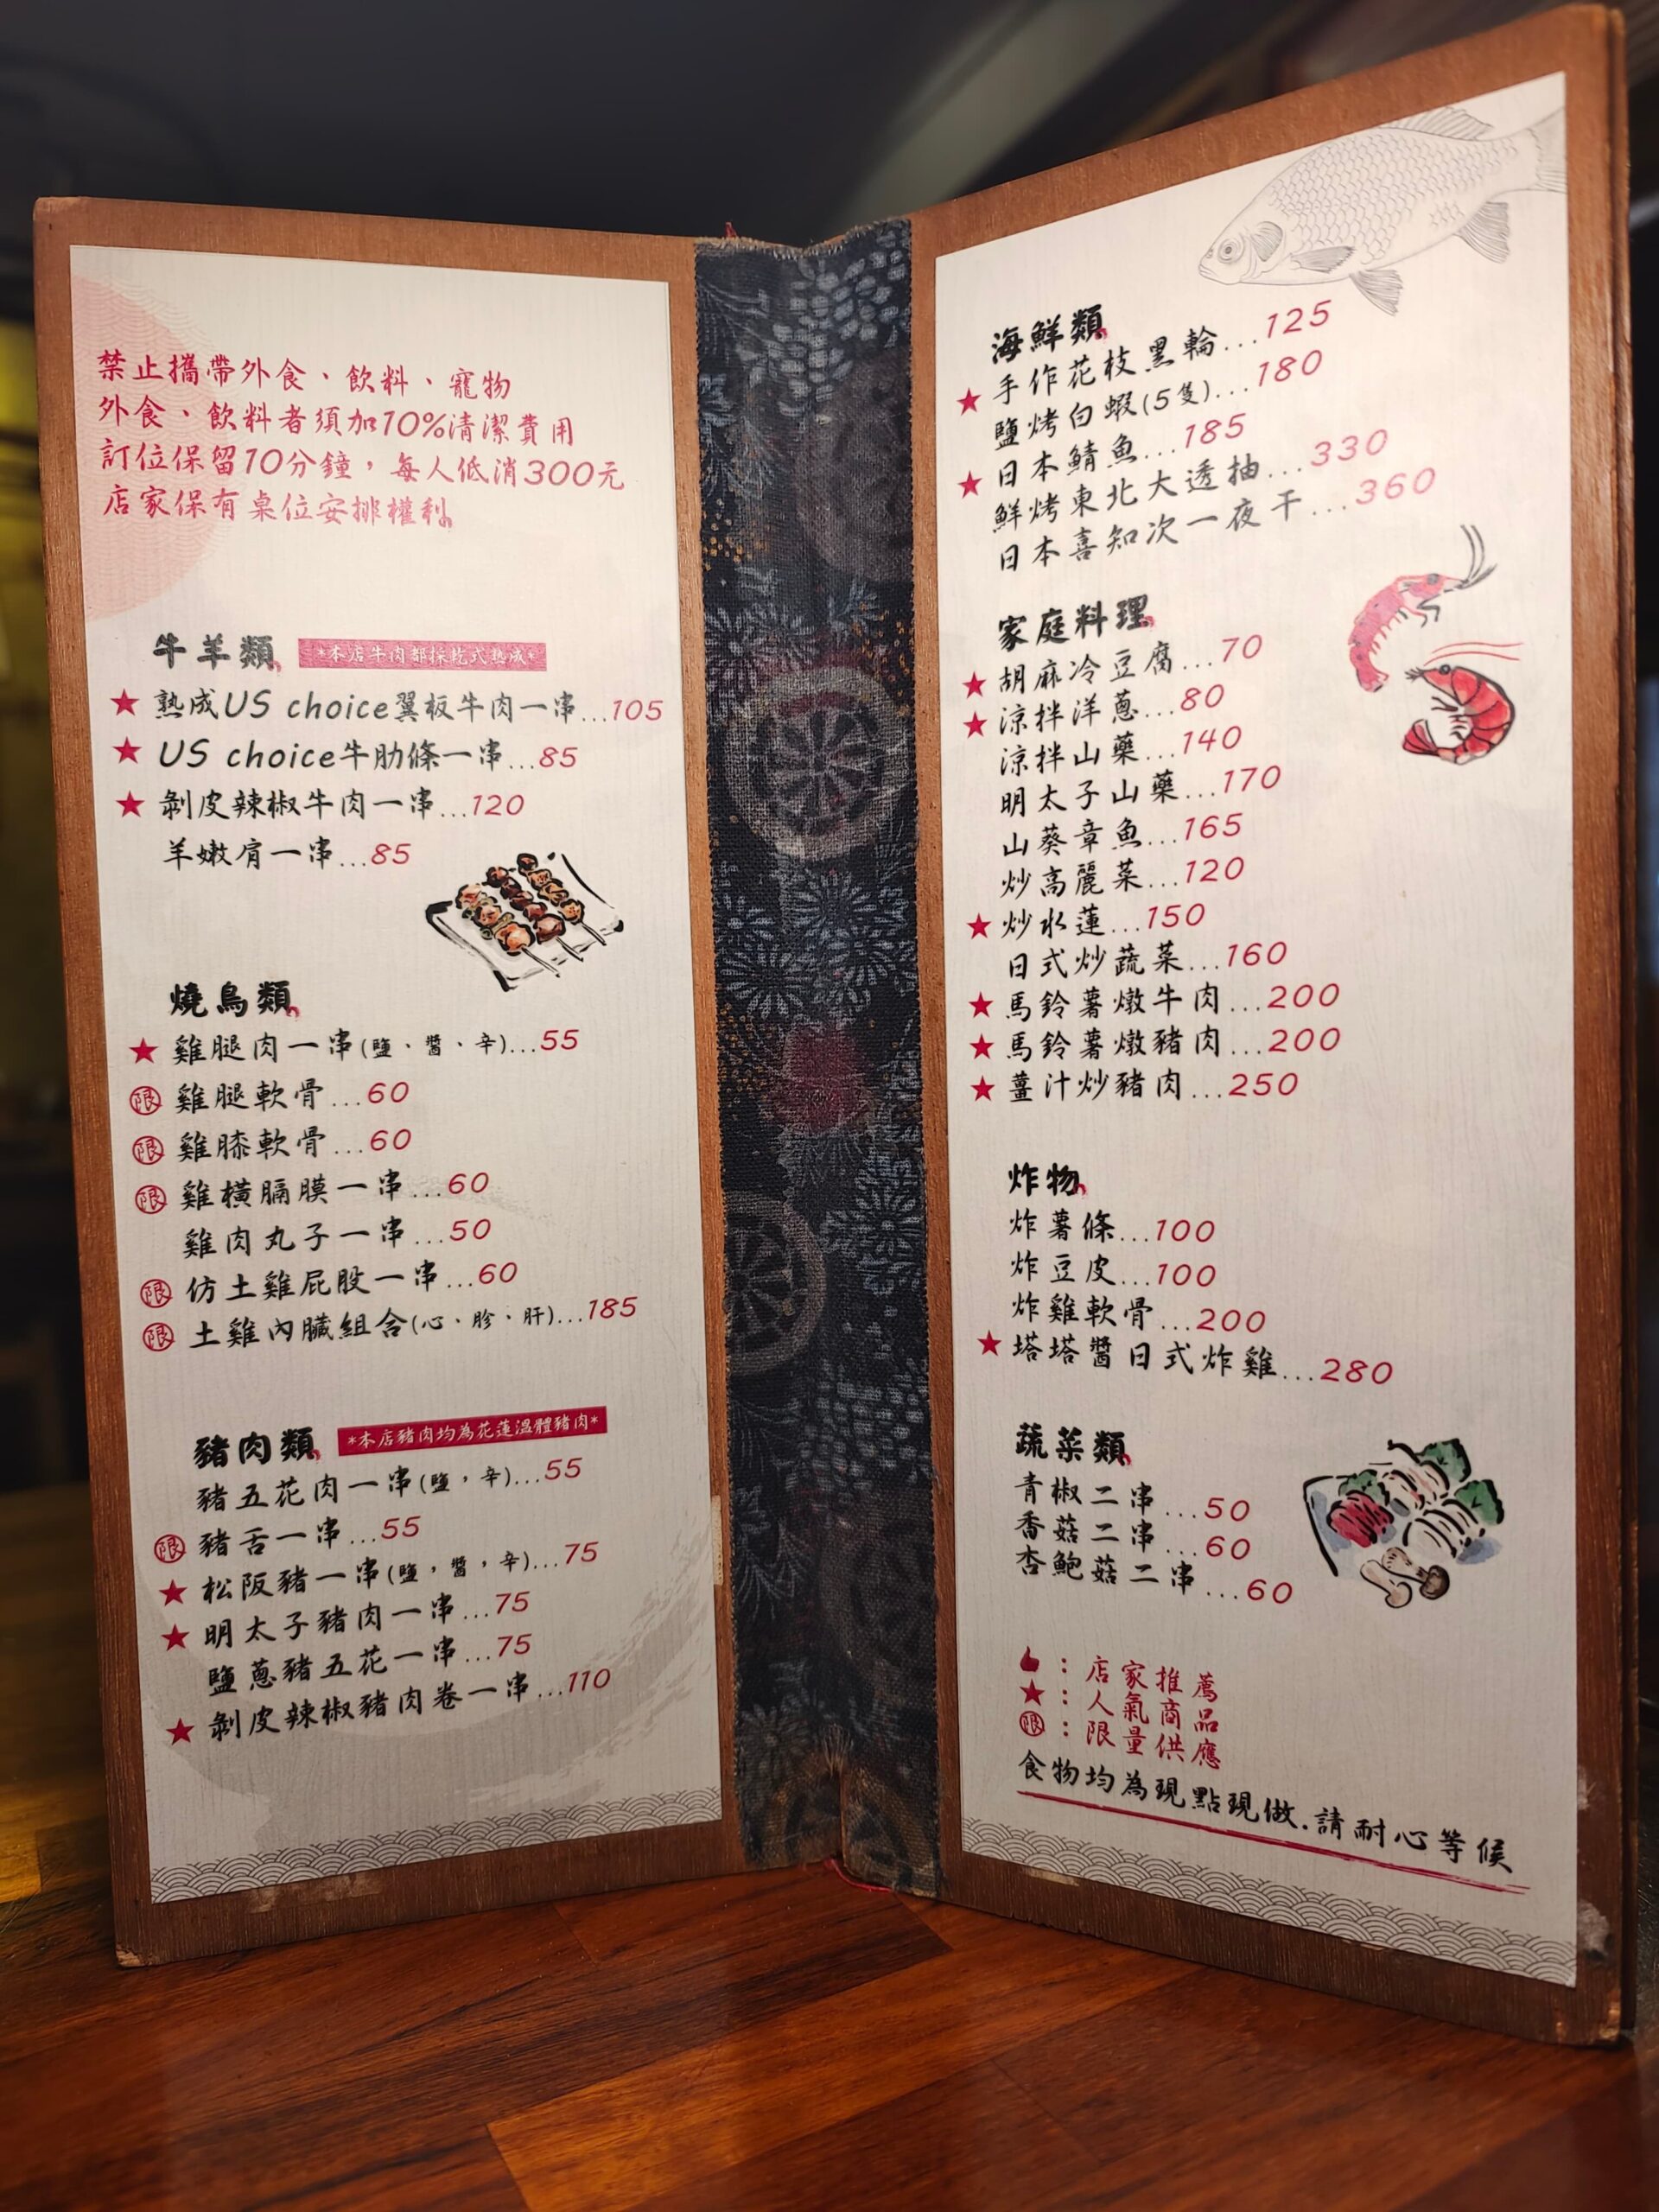 禁止攜帶外食、飲料、寵物
外食、飲料者須加10%清潔費用
訂位保留10分鐘，每人低消300元
店家保有桌位安排權利
牛羊類 *本店牛肉都採乾式熟成*
★ 熟成US choice翼板牛肉一串...105
★ US choice牛肋條一串...85
★ 剝皮辣椒牛肉一串...120
羊嫩肩一串...85
燒鳥類
★ 雞腿肉一串(鹽、醬、辛)...55
限 雞腿軟骨...60
限 雞膝軟骨...60
限 雞橫膈膜一串...60
雞肉丸子一串...50
限 仿土雞屁股一串...60
限 土雞內臟組合(心、胗、肝)...185
豬肉類 *本店豬肉均為花蓮溫體豬肉*
豬五花肉一串(鹽，辛)...55
限 豬舌一串...55
★ 松阪豬一串(鹽，醬，辛)...75
★ 明太子豬肉一串...75
鹽蔥豬五花一串...75
★ 剝皮辣椒豬肉卷一串...110
海鮮類
★ 手作花枝黑輪...125
鹽烤白蝦(5隻)...180
★ 日本鯖魚...185
鮮烤東北大透抽...330
日本喜知次一夜干...360
家庭料理
★ 胡麻冷豆腐...70
★ 涼拌洋蔥...80
涼拌山藥...140
明太子山藥...170
山葵章魚...165
炒高麗菜...120
★ 炒水蓮...150
日式炒蔬菜...160
★ 馬鈴薯燉牛肉...200
★ 馬鈴薯燉豬肉...200
★ 薑汁炒豬肉...250
炸物
炸薯條...100
炸豆皮...100
炸雞軟骨...200
★ 塔塔醬日式炸雞...280
蔬菜類
青椒二串...50
香菇二串...60
杏鮑菇二串...60
：店家推薦
★：人氣商品
限：限量供應
食物均為現點現做.請耐心等候